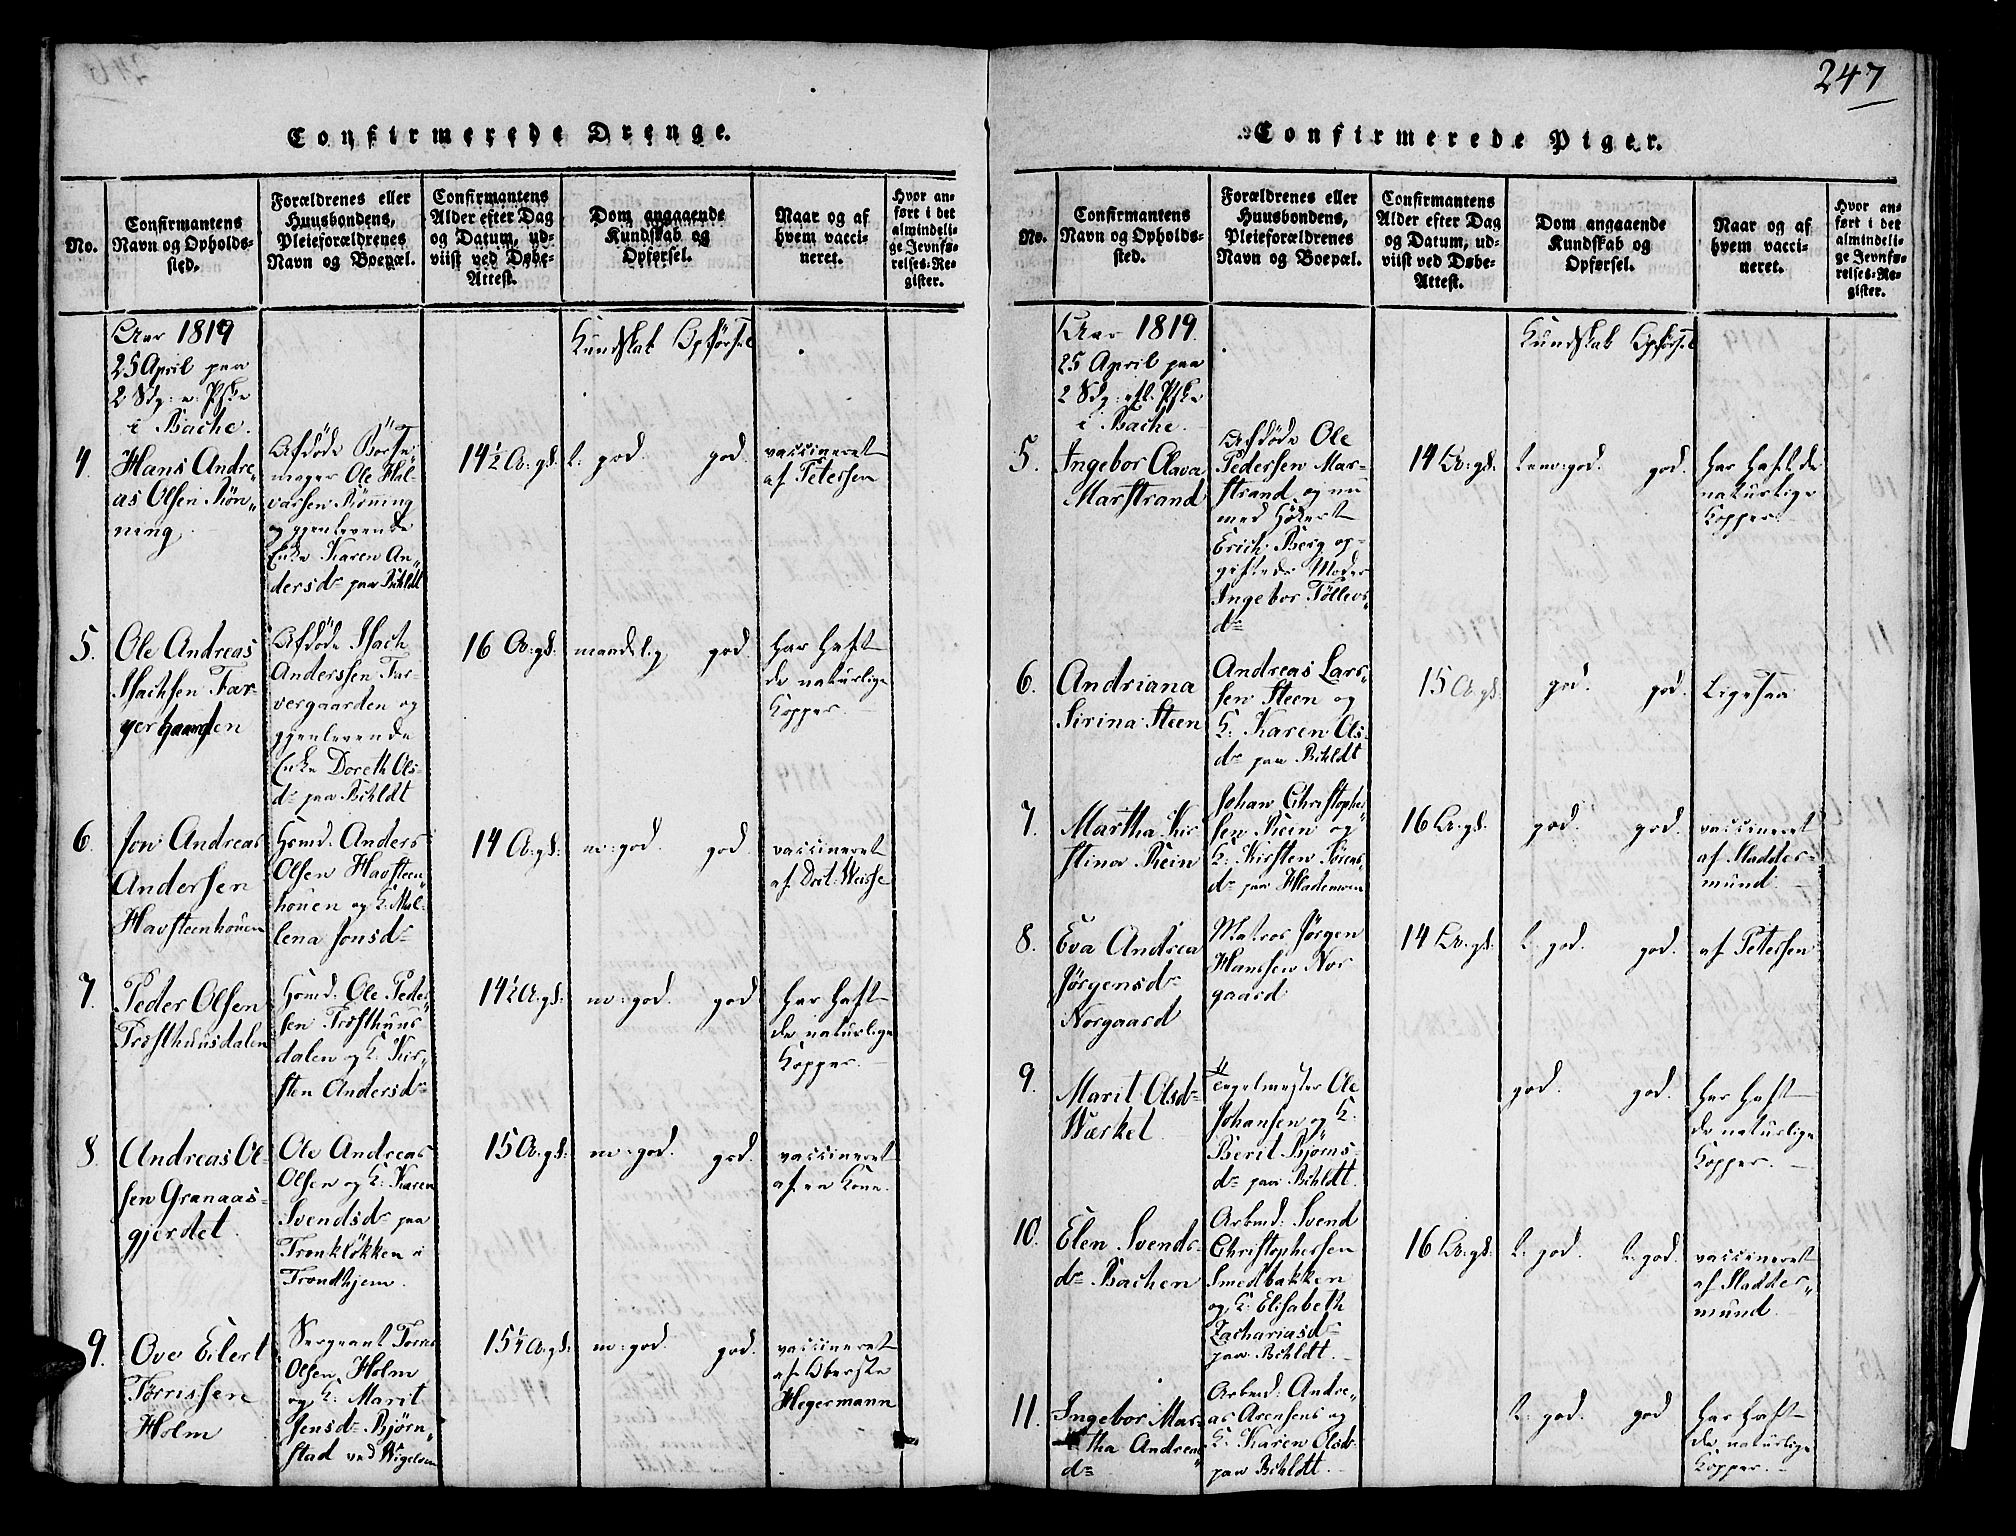 247
Confirmerede Drenge.
No.
Confirmantens
Navn og Opholds-
sted.
Forældrenes eller
Huusbondens,
Pleieforældrenes
Navn og Boepæl.
Confirmantens
Alder efter Dag
og Datum, ud-
viist ved Døbe-
Attest.
Dom angaaende
Kundskab og
Opførsel.
Naar og af
hvem vacci-
neret.
Hvor an-
ført i det
almindeli-
ge Jevnfø-
relses-Re-
gister.
Aar 1819
25 April paa
2 Sdg: e: Pske
i Bache.
Kundskab Opførsel
4.
Hans Andre-
as Olsen Røn-
ning
Afdøde
Ole Hal-
varsen Røning
og gjenlevende
Enke Karen An-
dersdr paa Bihldt
14½ A: gl:
t: god god.
vaccineret
af Petersen
5.
Ole Andreas
Isachsen Far-
vergaarden
Afdøde Isach
Anderssen Far-
vergaarden og
gjenlevende
Enke Doreth Ols-
dr paa Bihldt
16 A: gl:
maadelig god.
har haft
de naturlige
Kopper.
6.
Jon Andreas
Andersen
Havsteenhouen
Huusmd: Anders
Olsen Havsteen-
houen og K: Mal-
lena Jonsdr
14 A: gl:
nv: god. god.
vaccineret
af Doct: Weisse
7.
Peder Olsen
Præsthuusdalen
Huusmd: Ole Peder-
sen Præsthuus-
dalen og K: Kir-
sten Andersdr
14½ A: gl:
nv: god. god
har haft
de naturlige
Kopper.
8.
Andreas Ol-
sen Granaas-
gjerdet
Ole Andreas
Olsen og K: Karen
Svendsdr paa
Tronkløkken i
Trondhjem.
15 A: gl:
nv: god. god.
vaccineret
af en Kone.
9.
Ove Eilert
Torrissen
Holm
Sergeant Torris
Olsen Holm
og K: Marit
Jensdr Bjørn-
stad ved Wigelsem
15¼ A: gl:
nv: god. god.
vaccineret
af Oberste
Hegermann
Confirmerede Piger.
No.
Confirmantens
Navn og Opholds-
sted.
Forældrenes eller
Huusbondens,
Pleieforældrenes
Navn og Boepæl.
Confirmantens
Alder efter Dag
og Datum, ud-
viist ved Døbe-
Attest.
Dom angaaende
Kundskab og
Opførsel.
Naar og af
hvem vacci-
neret.
Hvor an-
ført i det
almindeli-
ge Jevnfø-
relses-Re-
gister.
Aar 1819.
25 April paa
2 Sdg: eft. Pske
i Bache.
Kundskab Opførsel
5.
Ingebor Olava
Marstrand
Afdøde Ole
Pedersen Mar-
strand og nu
med
Erich Berg op-
giftede Moder
Ingebor Tøllevs-
dr
14 A: gl:
god. god.
har haft de
naturlige
Kopper
6.
Andriana
Sirina Steen
Andreas Lars-
sen Steen og
K: Karen Ols-
dr paa Bihldt
15 A: gl:
god. god.
Ligesaa
7.
Martha Kir-
stina Rein
Johan Christopher-
sen Rein og
K: Kirsten Sørens-
dr paa Hademoen
16 A: gl:
god. god.
vaccineret
af Sladder-
mund.
8.
Eva Andrea
Jørgensdr
Norgaard
Matros Jørgen
Hanssen Nor
gaard
14 A: gl:
t: god. god.
af Petersen
9.
Marit Olsdr
Værket
Teygelmester Ole
Johansen og K:
Berit Bjørns-
dr paa Bihldt.
god. god.
har haft
de naturlige
Kopper.
10.
Elen Svends-
dr Bachen
Arbmd: Svend
Christophersen
Smedbakken
og K: Elisabeth
Zachariasdr
paa Bihldt.
16 A: gl:
t: god. t: god.
vaccineret
af Sladder-
mund
11.
Ingebor Mar-
tha Andreas-
dr
Arbmd: Andre-
as Arensens og
K: Karen Olsdr
paa Bihldt.
t: god. god
har haft
de naturlige
Kopper.